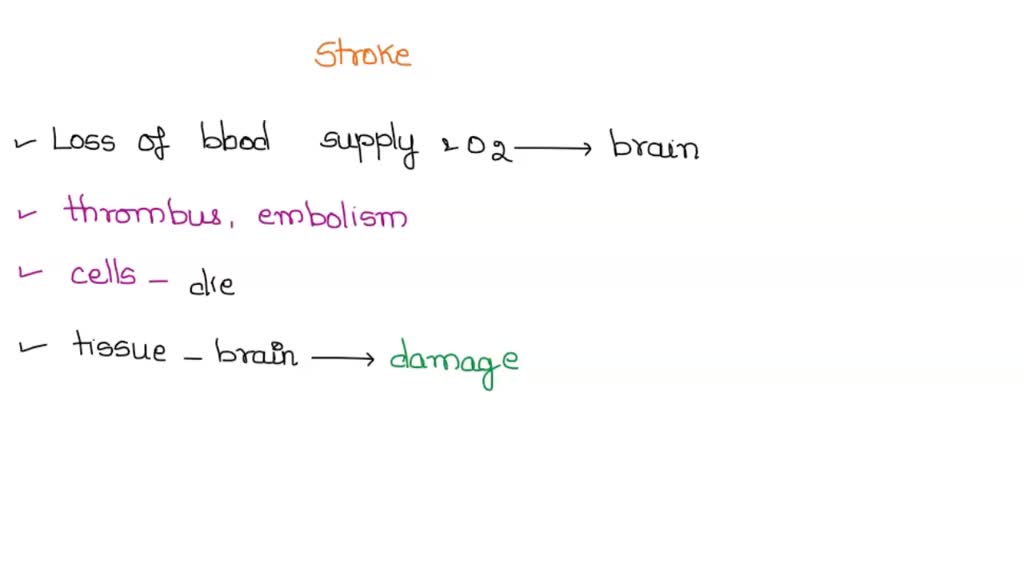 Stroke
✓ Loss of blood supply & O2 → brain
✓ thrombus, embolism
✓ cells - die
✓ tissue - brain → damage